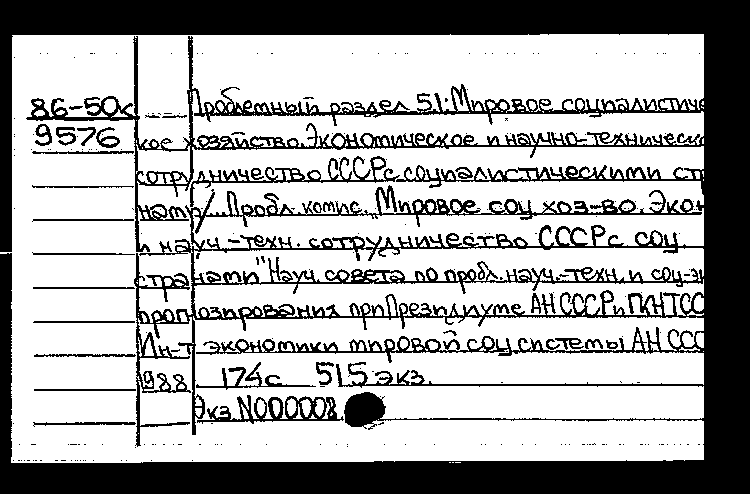 86-50к Проблемный раздел 51: Мировое социалистиче
9576 кое хозяйство. Экономическое и научно-техническо
сотрудничество СССР с социалистическими стр
нами/... Пробл. комис. „Мировое соц. хоз-во. Экон
и науч.-техн. сотрудничество СССР с соц.
странами" Науч. совета по пробл. науч.-техн. и соц-эк
прогнозирования при Президиуме АН СССР и ГКНТ СС
Ин-т экономики мировой соц. системы АН ССС
1988. 174с 515 экз.
Экз N000008